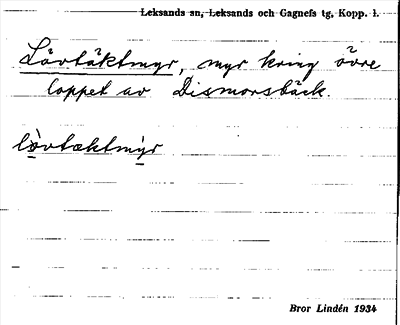 Leksands sn, Leksands och Gagnefs tg, Kopp. l.
Lövtäktmyr, myr kring övre
loppet av Dismorsbäck.
lòvtæktmy̠r
Bror Lindén 1934